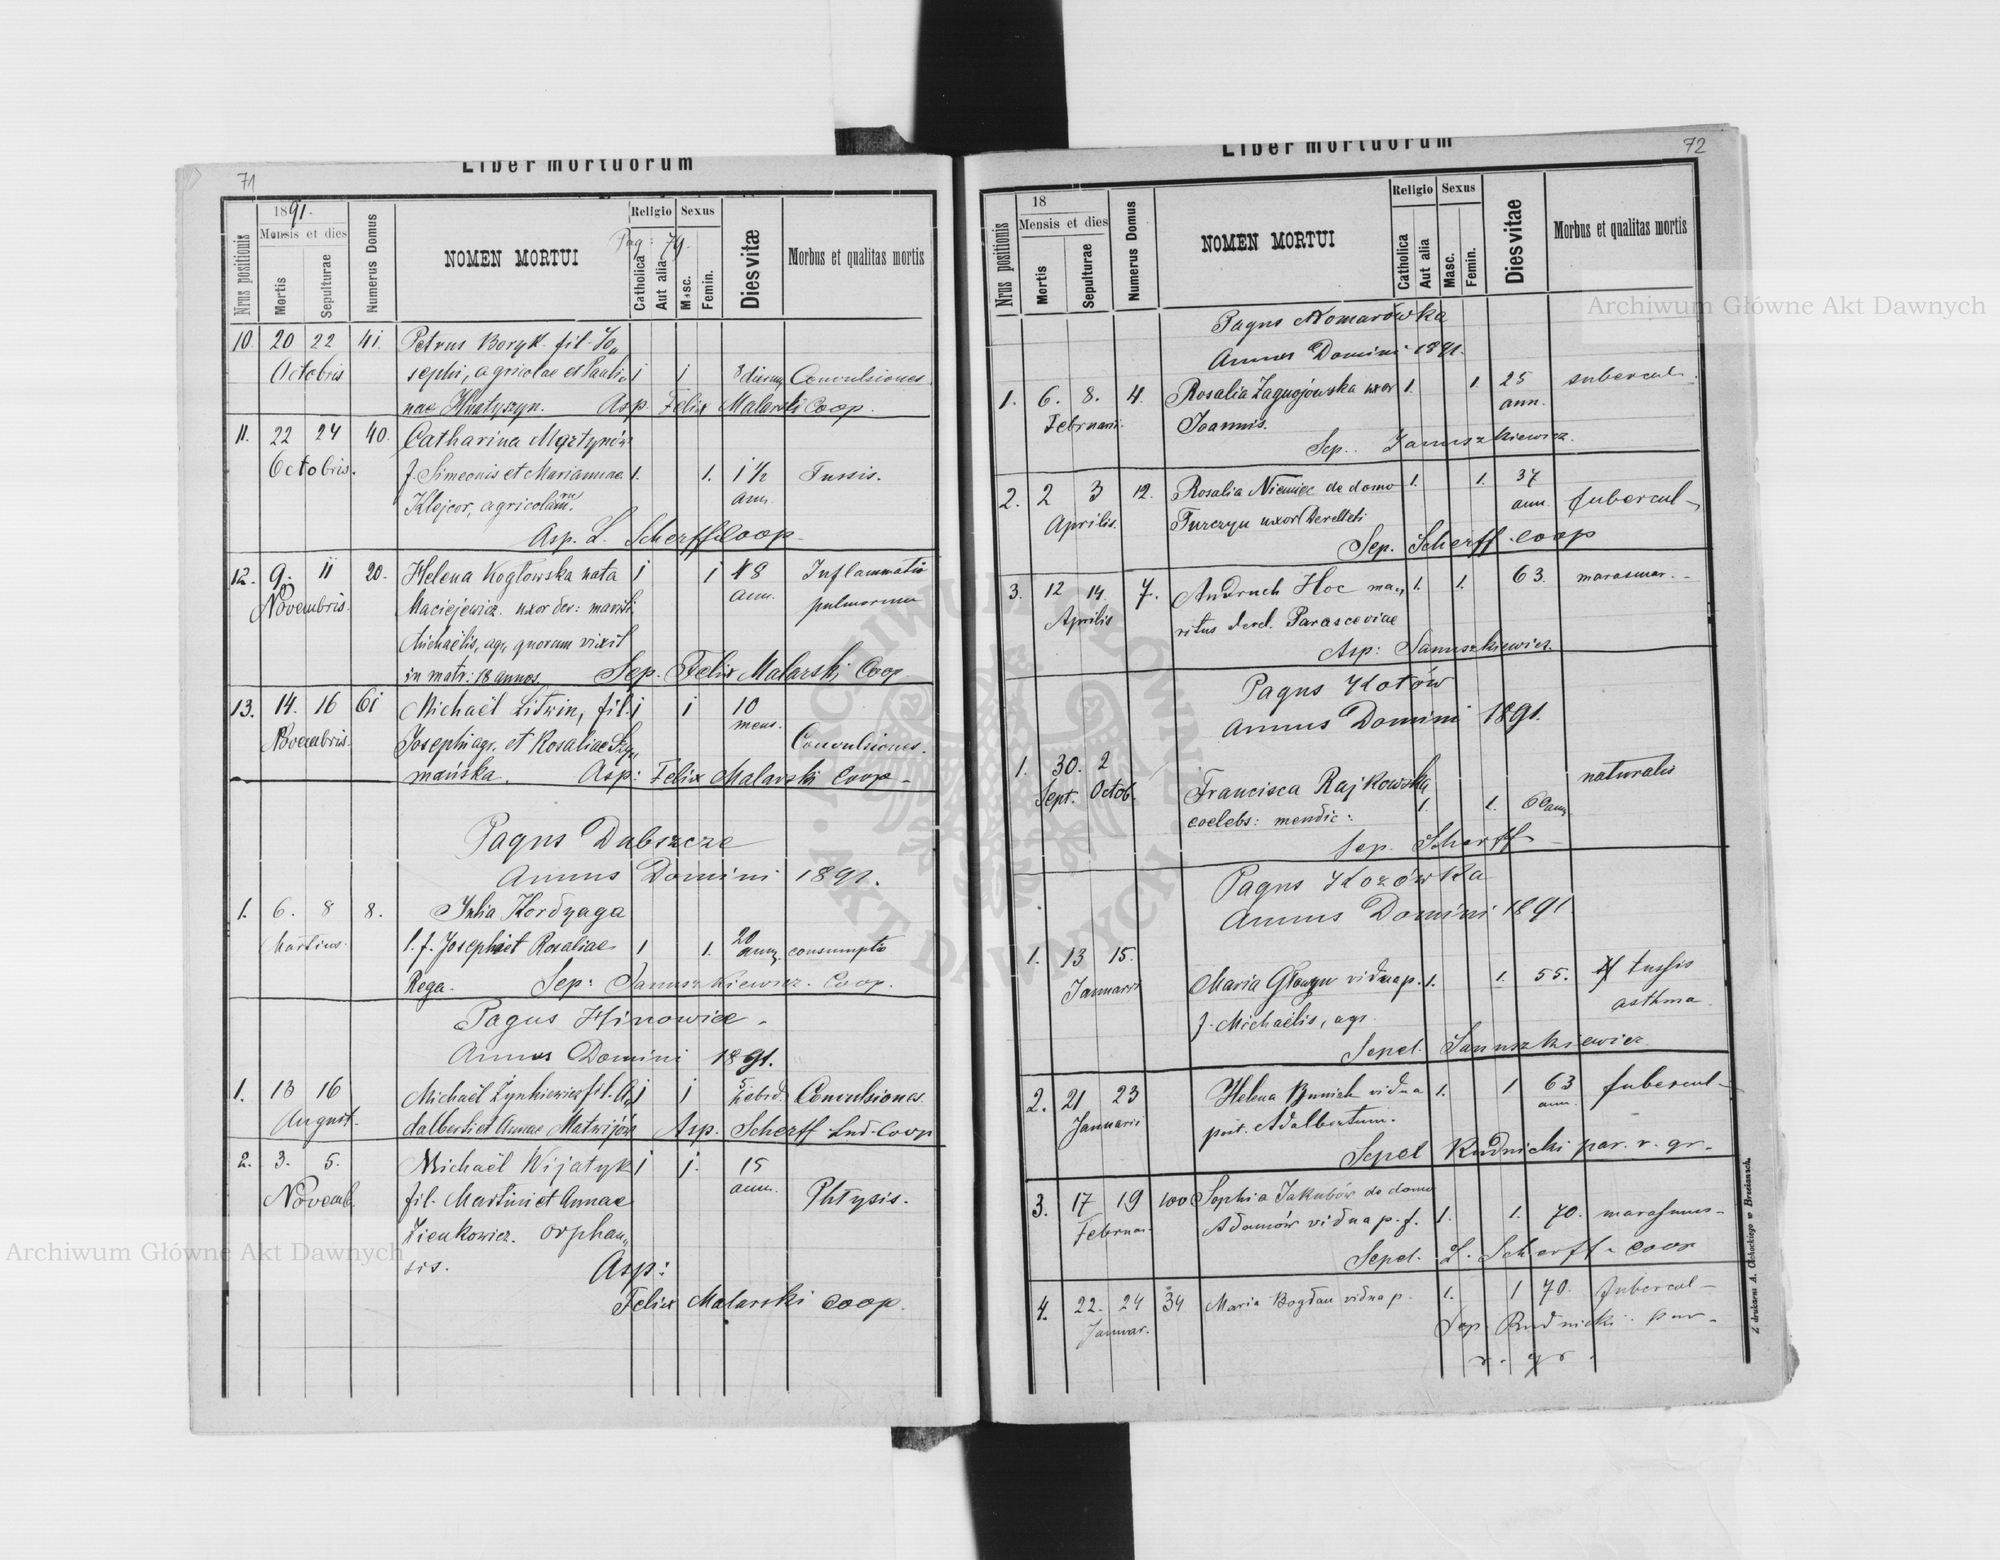 71
Liber mortuorum
1891.
Mensis et dies
Nrus positionis
Mortis
Sepulturae
Numerus Domus
NOMEN MORTUI
Pag: 79.
Religio
Sexus
Catholica
Aut alia
Masc.
Femin.
Dies vitæ
Morbus et qualitas mortis
10. 20 22 41. Petrus Boryk fil. Jo„
Octobris sephi, agricolae et Pauli„ 1 1 8 dierum Convulsiones.
nae Hnatyszyn. Asp. Felix Malarski Coop.
11. 22 24 40. Catharina Martynów
Octobris. f. Simeonis et Mariannae 1. 1. 1 1/2 Tussis.
Klejcor, agricolarum. ann.
Asp. L. Scherff Coop
12. 9. 11 20. Helena Kogłowska nata 1 1 48 Inflammatio
Novembris. Maciejewicz. uxor der: mariti ann. pulmonum
Michaëlis, agr, quorum vixit
in matr: 18 annos. Sep. Felix Malarski Coop
13. 14. 16 61 Michaël Litwin, fil. 1 1 10
Novembris. Josephi agr. et Rosaliae Szy„ mens. Convulsiones.
mańska. Asp: Felix Malarski Coop
Pagus Dubszcze
Annus Domini 1891.
1. 6. 8 8. Julia Kordyaga
Martius. l. f. Josephi et Rosaliae 1 1. 20 ann. consumptio
Rega. Sep: Januszkiewicz. Coop.
Pagus Hinowice.
Annus Domini 1891.
1. 13 16 Michaël Zynkiewicz fil. A„ 1 1 5 hebd. Convulsiones
August. dalberti et Annae Matwijów Asp. Scherff Lud. Coop
2. 3. 5. Michaël Wijatyk 1 1. 15
Novemb. fil. Martini et Annae ann. Phtysis.
Zienkowicz. orphan„
sis. Asp:
Felix Malarski Coop.
72
Liber mortuorum
18
Mensis et dies
Nrus positionis
Mortis
Sepulturae
Numerus Domus
NOMEN MORTUI
Religio
Sexus
Catholica
Aut alia
Masc.
Femin.
Dies vitae
Morbus et qualitas mortis
Pagus Komarówka
Annus Domini 1891.
1. 6. 8. 4. Rosalia Zagwojówska uxor 1. 1. 25 tubercul.
Februari. Joannis. ann.
Sep. Januszkiewicz.
2. 2 3 12. Rosalia Niemiec de domo 1. 1. 37
Aprilis. Turczyn uxor Derelleti ann. tubercul
Sep. Scherff coop
3. 12 14 7. Andruch Hoc ma„ 1. 1. 63. marasmar.
Aprilis ritus derel. Parasceviae
Asp: Januszkiewicz.
Pagus Kotów
Annus Domini 1891.
1. 30. 2 naturalis
Sept. Octob. Francisca Rajkowska
coelebs: mendic: 1. 1. 60 ann.
Sep. Scherff
Pagus Kozówka
Annus Domini 1891
1. 13 15.
Januari Maria Głowyn vidua p. 1. 1. 55. tussis
f. Michaëlis, agr. asthma.
Sepel. Januszkiewicz
2. 21 23 Helena Bunich vidua 1. 1 63 tubercul
Januari post. Adalbertum. ann.
Sepel Rudnicki par. r. gr.
3. 17 19 100 Sophia Jakubów de domo
Februari. Adamów vidua p. f. 1. 1. 70. marasmus
Sepel. L. Scherff coop
4. 22. 24 34 Maria Bogdan vidua p. 1. 1 70. tubercul
Januar. Sep. Rudnicki par
r. gr.
Z drukarni A. Ochockiego w Brzeżanach
Archiwum Główne Akt Dawnych
Archiwum Główne Akt Dawnych
ARCHIWUM GŁÓWNE
AKT DAWNYCH